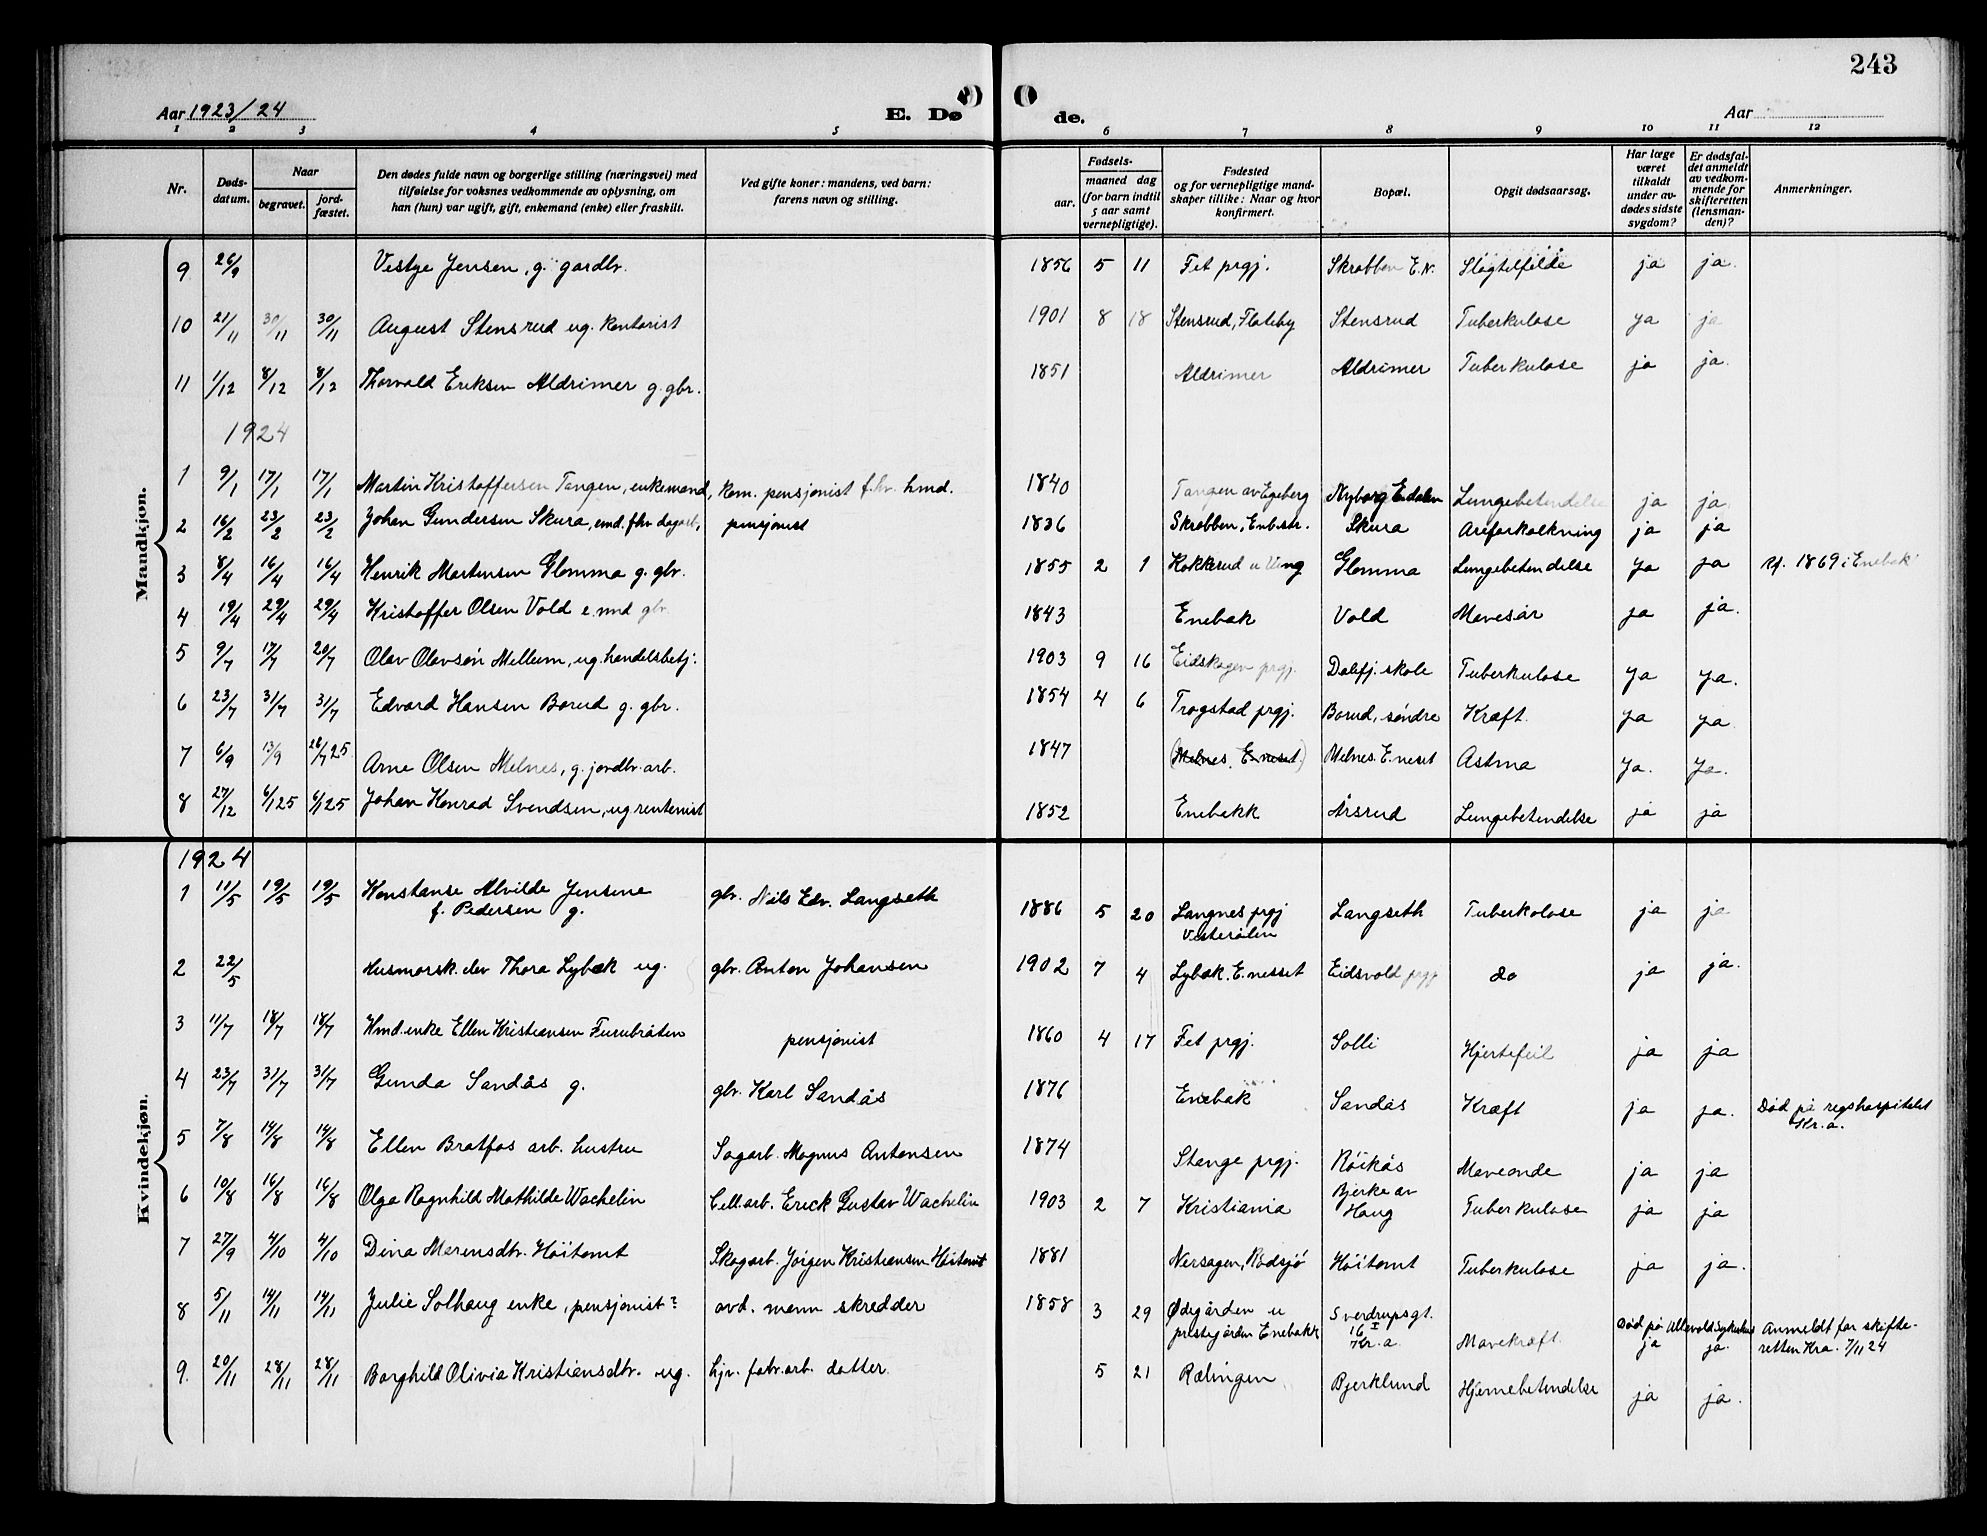 243
Aar 1923/24
E. Dø de.
Aar
1 2 3 4 5 6 7 8 9 10 11 12
Nr.
Døds-
datum.
Naar
begravet.
jord-
fæstet.
Den dødes fulde navn og borgerlige stilling (næringsvei) med
tilføielse for voksnes vedkommende av oplysning, om
han (hun) var ugift, gift, enkemand (enke) eller fraskilt.
Ved gifte koner: mandens, ved barn:
farens navn og stilling.
Fødsels-
aar.
maaned dag
(for barn indtil
5 aar samt
vernepligtige).
Fødested
og for vernepligtige mand-
skaper tillike: Naar og hvor
konfirmert.
Bopæl.
Opgit dødsaarsag.
Har læge
været
tilkaldt
under av-
dødes sidste
sygdom?
Er dødsfal-
det anmeldt
av vedkom-
mende for
skifteretten
(lensman-
den)?
Anmerkninger.
Mandkjøn.
9 26/9 Vestye Jensen, g. gardbr. 1856 5 11 Fet prgj. Skrabben E.N. Slagtilfelde ja ja.
10 21/11 30/11 30/11 August Stensrud ug. kontorist 1901 8 18 Stensrud, Flateby Stensrud Tuberkulose ja ja
11 1/12 8/12 8/12 Thorvald Eriksen Aldrimer g. gbr. 1851 Aldrimer Aldrimer Tuberkulose ja ja.
1924
1 9/1 17/1 17/1 Martin Kristoffersen Tangen, enkemand, kom. pensjonist f.hv. hmd. 1840 Tangen av Egeberg Nyborg E.dalen Lungebetendelse ja ja
2 16/2 23/2 23/2 Johan Gundersen Skura, emd. fhv dagarb, pensjonist 1836 Skrabben, Enb.str. Skura Areforkalkning ja ja
3 8/4 16/4 16/4 Henrik Martinsen Glomma g. gbr. 1855 2 1 Kokkrud u Ung Glomma Lungebetendelse ja ja kf. 1869 i Enebak
4 19/4 29/4 29/4 Kristoffer Olsen Vold e.md gbr. 1843 Enebak Vold Mavesår ja ja.
5 9/7 17/7 20/7 Olav Olavsøn Mellum, ug. handelsbetj. 1903 9 16 Eidskogen prgj. Dalefj. skole Tuberkulose ja ja.
6 23/7 31/7 31/7 Edvard Hansen Borud g. gbr. 1854 4 6 Trogstad prgj. Borud, søndre Kræft. ja ja
7 6/9 13/9 26/7 25 Arne Olsen Melnes, g. jordbr. arb. 1847 (Melnes, E.neset.) Melnes E.neset Astma ja. ja.
8 27/12 6/1 25 6/1 25 Johan Konrad Svendsen, ug rentenist 1852 Enebakk Årsrud Lungebetendelse ja ja
Kvindekjøn.
1924
1 11/5 19/5 19/5 Konstanse Alvilde Jensine
f. Pedersen g. gbr. Nils Edv. Langseth 1886 5 20 Langnes prgj
Vesterålen Langseth Tuberkolose ja ja
2 22/5 Husmorsk. elev Thora Lybæk ug. gbr. Anton Johansen 1902 7 4 Lybæk. E.nesset Eidsvold prgj do ja ja.
3 11/7 18/7 18/7 Hmd. enke Ellen Kristiansen Furubråten pensjonist 1860 4 17 Fet prgj. Solli Hjertefeil ja ja
4 23/7 31/7 31/7 Gunda Sandås g. gbr. Karl Sandås 1876 Enebak Sandås Kræft ja ja. Død på rigshospitalet
Kr.a.
5 7/8 14/8 14/8 Ellen Bratfos arb. hustru Sagarb. Magnus Antonsen 1874 Stange prgj. Röikås Maveonde ja ja
6 10/8 16/8 16/8 Olga Ragnhild Mathilde Wachelin Cell. arb. Erick Gustav Wachelin 1903 2 7 Kristiania Bjerke av
Haug Tuberkulose ja ja
7 27/9 4/10 4/10 Dina Marensdtr. Höitomt Skogarb. Jörgen Kristiansen Höitomt 1881 Nersagen, Rødsjø Höitomt Tuberkulose ja ja.
8 5/11 14/11 14/11 Julie Solhaug enke, pensjonist? avd. mann skredder 1858 3 29 Ødegården u
prestegården Enebakk Sverdrupsgt.
16 I
Kr.a. Mavekræft. Død på Ullevold sykehus
ja ja. Anmeldt for skifte-
retten Kra. 7/11 24
9. 20/11 28/11 28/11 Borghild Olivia Kristiansdtr. ug. hjv. fabr. arb. datter. 5 21 Rælingen Bjerklund Hjernebetendelse ja ja.